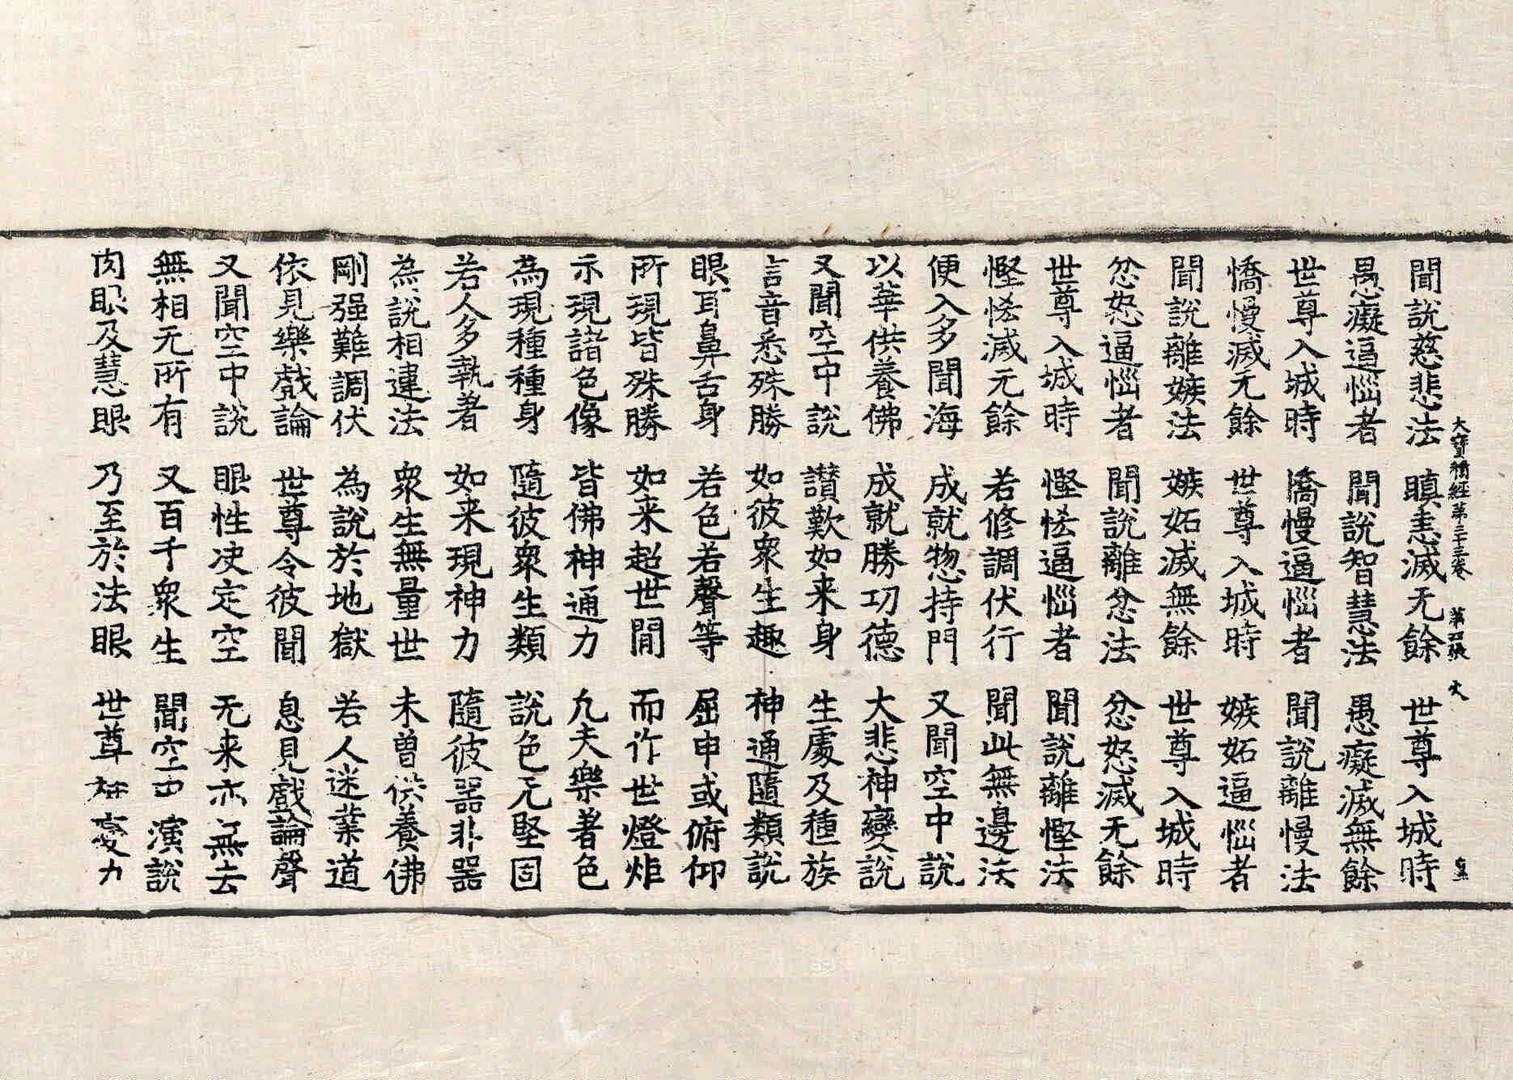 大寶積經第三十三卷 第四張 火
聞說慈悲法 瞋恚滅无餘 世尊入城時
愚癡逼惱者 聞說智慧法 愚癡滅無餘
世尊入城時 憍慢逼惱者 聞說離慢法
憍慢滅无餘 世尊入城時 嫉妬逼惱者
聞說離嫉法 嫉妬滅無餘 世尊入城時
忿怒逼惱者 聞說離忿法 忿怒滅无餘
世尊入城時 慳悋逼惱者 聞說離慳法
慳悋滅无餘 若修調伏行 聞此無邊法
便入多聞海 成就惣持門 又聞空中說
以華供養佛 成就勝功德 大悲神變說
又聞空中說 讃歎如来身 生處及種族
言音悉殊勝 如彼衆生趣 神通隨類說
眼耳鼻舌身 若色若聲等 屈申或俯仰
所現皆殊勝 如来超世閒 而作世燈炬
示現諸色像 皆佛神通力 凢夫樂著色
為現種種身 隨彼衆生類 說色无堅固
若人多執著 如来現神力 隨彼器非器
為說相違法 衆生無量世 未曾供養佛
剛强難調伏 為說於地獄 若人迷業道
依見樂戲論 世尊令彼聞 息見戲論聲
又聞空中說 眼性决定空 无来亦無去
無相无所有 又百千衆生 聞空中演說
肉眼及慧眼 乃至於法眼 世尊神變力